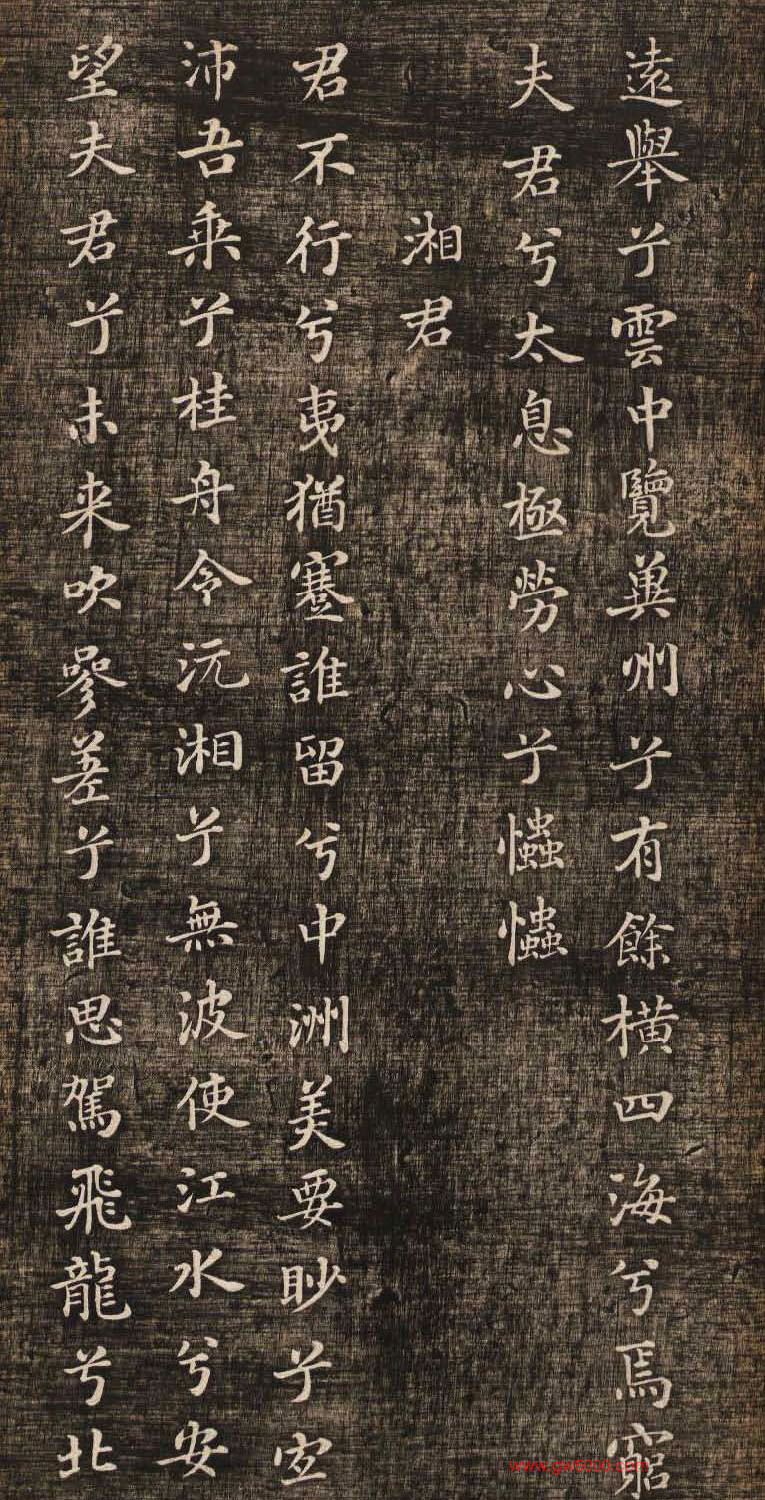 遠舉兮雲中覽兾州兮有餘橫四海兮焉窮
夫君兮太息極勞心兮㦜㦜
湘君
君不行兮夷猶蹇誰留兮中洲美要眇兮宜
沛吾乘兮桂舟令沅湘兮無波使江水兮安
望夫君兮未来吹參差兮誰思駕飛龍兮北
www.gw5000.com